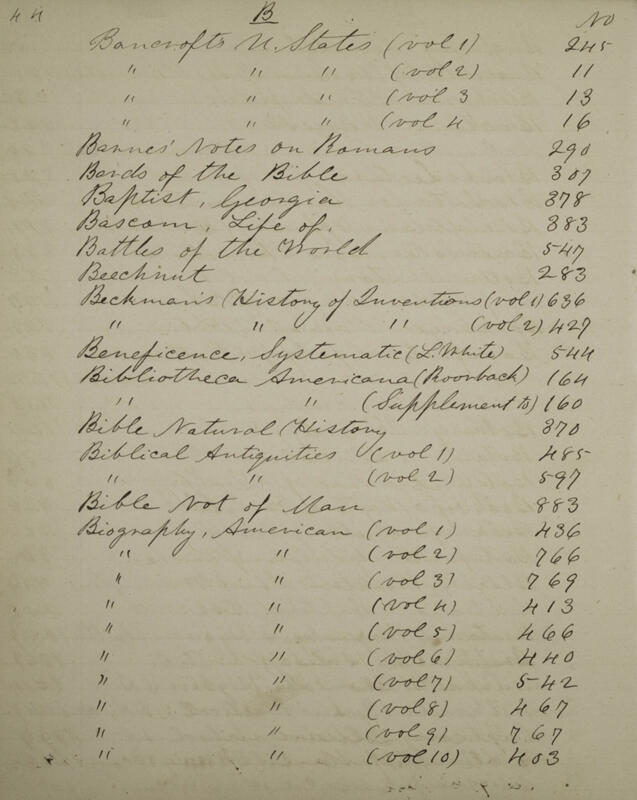 44 B No
Bancroft's U. States (vol 1) 245
" " " (vol 2) 11
" " " (vol 3 13
" " " (vol 4 16
Barnes' Notes on Romans 290
Bards of the Bible 307
Baptist, Georgia 378
Bascom, Life of. 383
Battles of the World 547
Beechnut 283
Beckman's History of Inventions (vol 1) 636
" " " (vol 2) 427
Beneficence, Systematic (L. White) 544
Bibliotheca Americana (Roorback) 164
" " (Supplement to) 160
Bible Natural History 370
Biblical Antiquities (vol 1) 485
" " (vol 2) 597
Bible Not of Man 883
Biography, American (vol 1) 436
" " (vol 2) 766
" " (vol 3) 769
" " (vol 4) 413
" " (vol 5) 466
" " (vol 6) 440
" " (vol 7) 542
" " (vol 8) 467
" " (vol 9) 767
" " (vol 10) 403